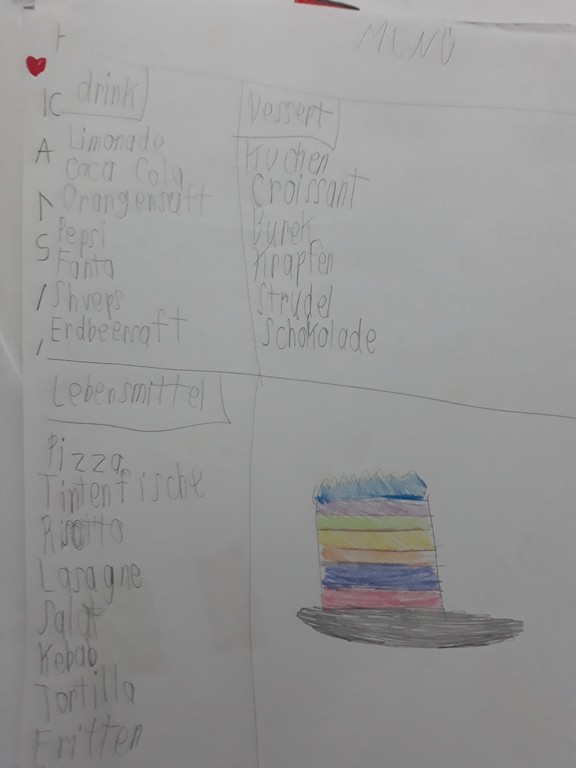 MENÜ
drink
Limonade
Coca Cola
Orangensaft
Pepsi
Fanta
Shveps
Erdbeersaft
Dessert
Kuchen
Croissant
Burek
Krapfen
Strudel
Schokolade
Lebensmittel
Pizza
Tintenfische
Risotto
Lasagne
Salat
Kebab
Tortilla
Fritten